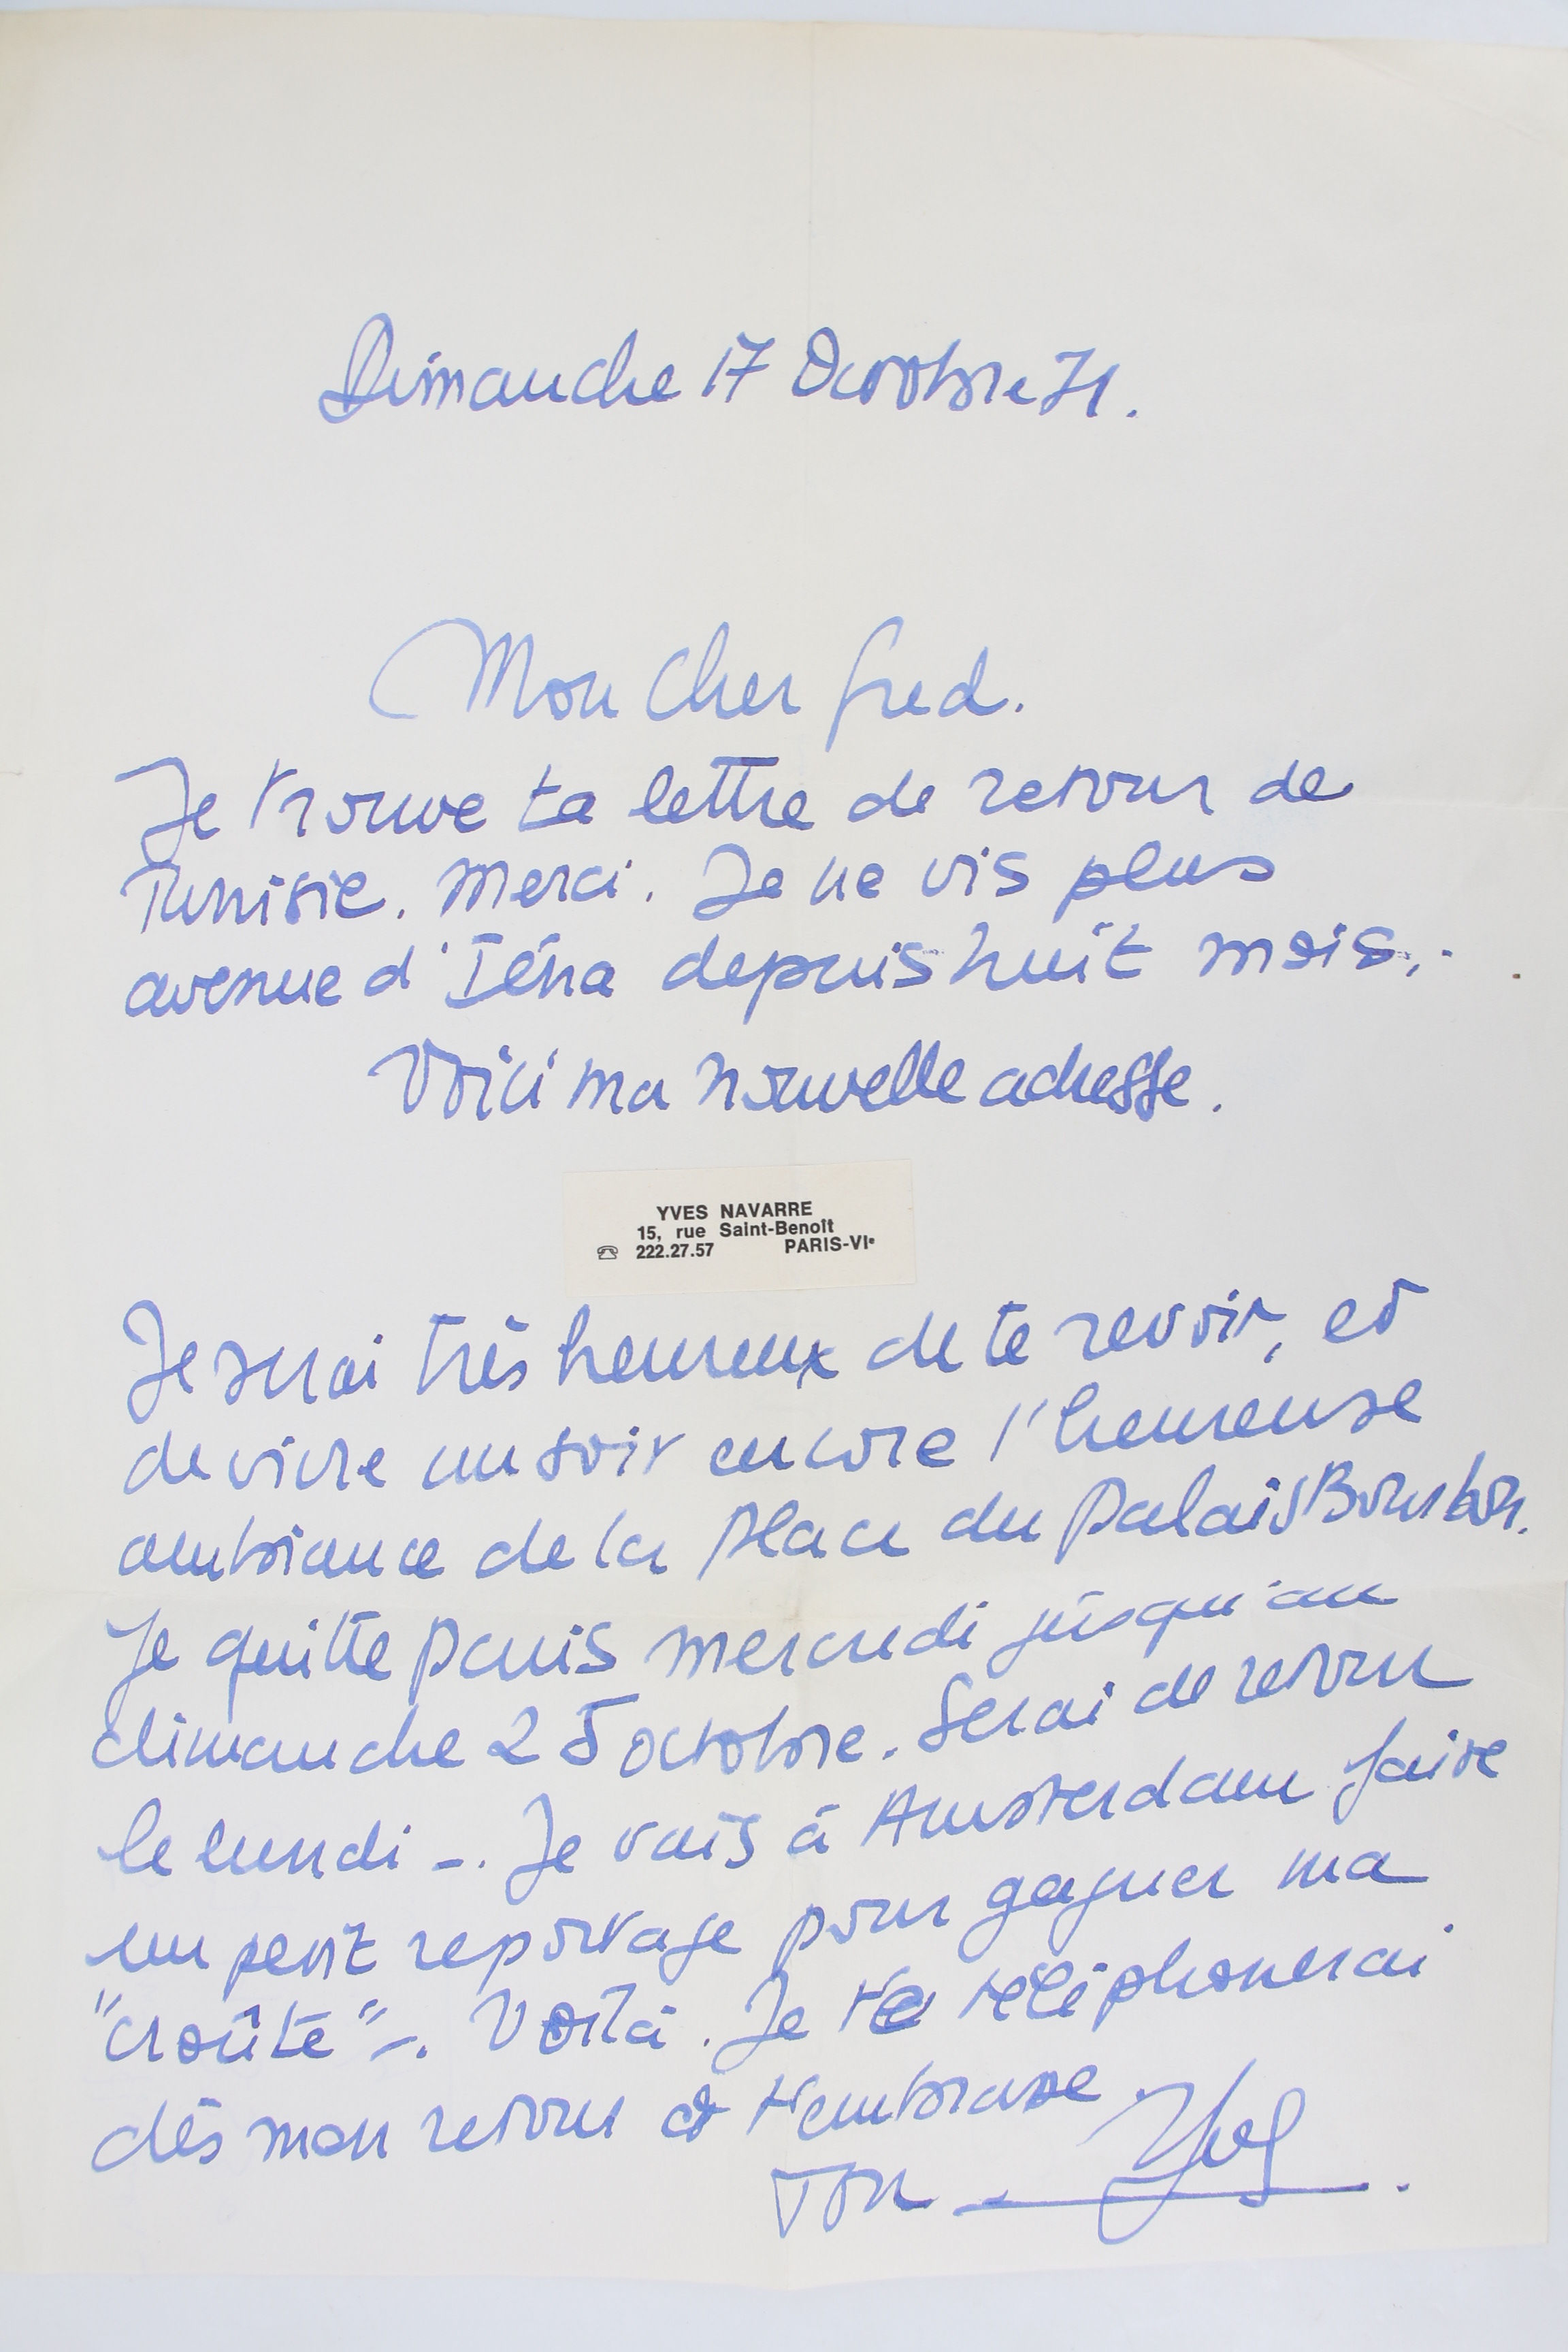 Dimanche 17 Octobre 71.
Mon Cher Fred.
Je trouve ta lettre de retour de
Tunisie. Merci. Je ne vis plus
avenue d'Iéna depuis huit mois..
Voici ma nouvelle adresse.
YVES NAVARRE
15, rue Saint-Benoît
☎ 222.27.57 PARIS-VIe
Je serai très heureux de te revoir, et
de vivre un soir encore l'heureuse
ambiance de la Place du Palais Bourbon.
Je quitte Paris mercredi jusqu'au
dimanche 25 octobre. Serai de retour
le lundi -. Je vais à Amsterdam faire
un petit reportage pour gagner ma
"croûte" -. Voilà. Je te téléphonerai
dès mon retour et t'embrasse.
Ton Yves.